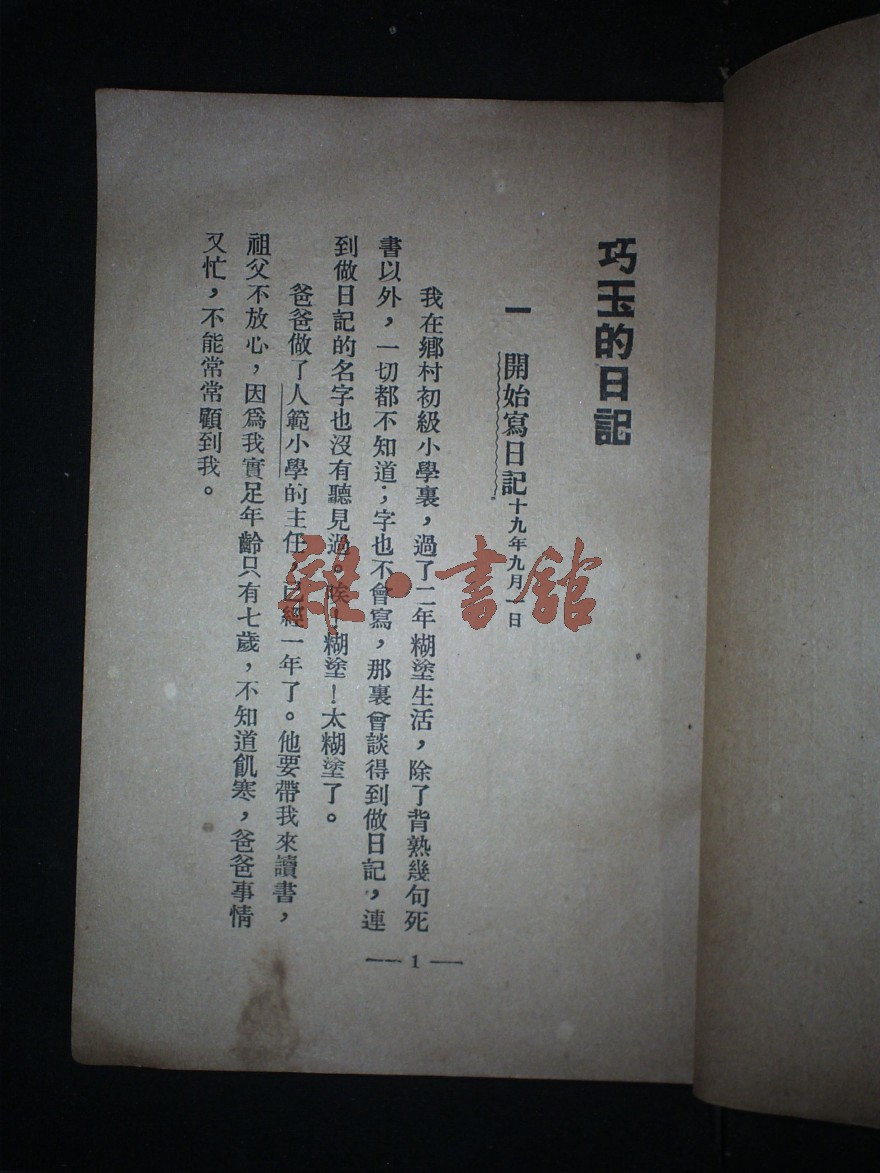 巧玉的日記
一 開始寫日記 十九年九月一日
我在鄉村初級小學裏，過了二年糊塗生活，除了背熟幾句死
書以外，一切都不知道；字也不會寫，那裏會談得到做日記，連
到做日記的名字也沒有聽見過。唉！糊塗！太糊塗了。
爸爸做了人範小學的主任，已經一年了。他要帶我來讀書，
祖父不放心，因爲我實足年齡只有七歲，不知道飢寒，爸爸事情
又忙，不能常常顧到我。
— 1 —
雜·書館